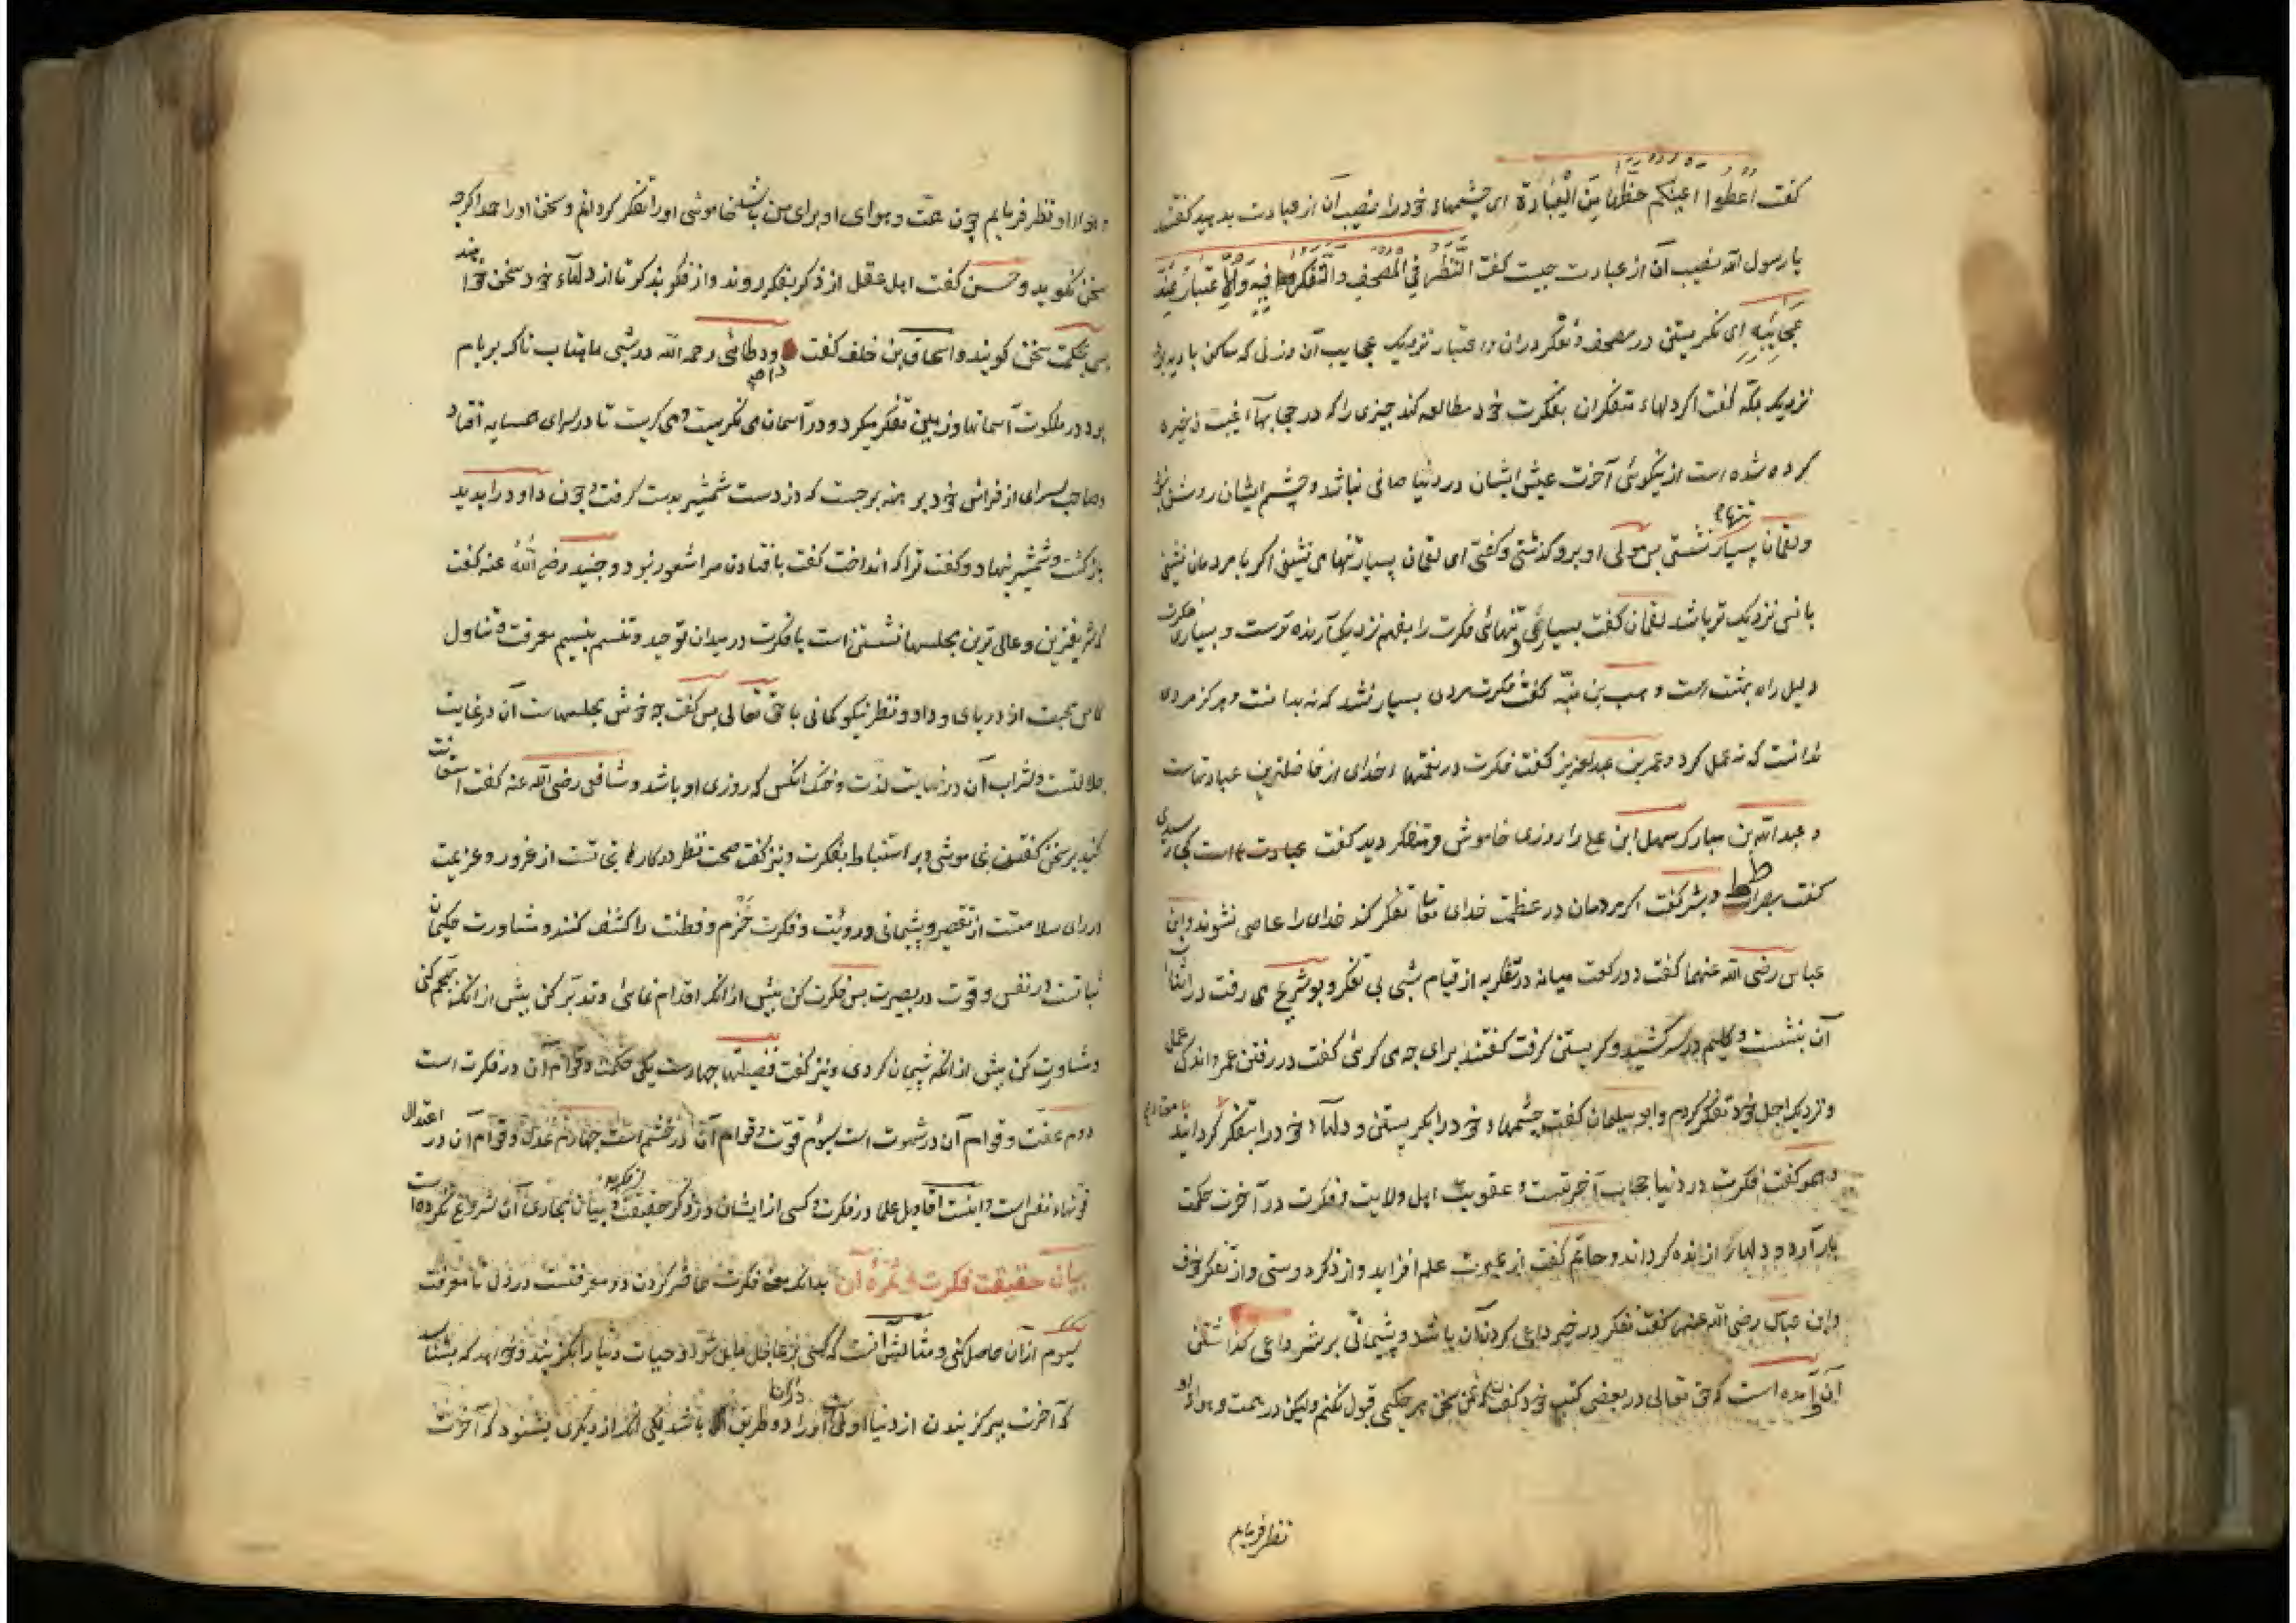 کفت اعطوا اعینکم حظها من العبادة ای چشمهاء خود را نصیب آن از عبادت بدهید کفتند
یا رسول الله نصیب آن از عبادت چیست کفت النظر فی المصحف والتفکر فیه والاعتبار عند
عجائبه ای نکریستن در مصحف و تفکر دران و اعتبار نزدیک عجایب آن و زنی که ساکن بادیه بود
نزدیک بمکه کفت اکر دلهاء متفکران بفکرت خود مطالعه کند چیزی را که در حجابهاء غیب ذخیره
کرده شده است از نیکوئی آخرت عیش ایشان در دنیا صافی نباشد و چشم ایشان روشن نشود
ولقمان بسیار تنها نشستی پس مولی او برو کذشتی و کفتی ای لقمان بسیار تنها می نشینی اکر با مردمان نشینی
بانس نزدیک تر باشد لقمان کفت بسیاری تنهائی فکرت را بفهم نزدیک آرنده ترست و بسیاری فکرت
دلیل راه بهشت است وهب بن منبه کفت فکرت مردی بسیار نشد که نه بدانست و هرکز مردی
ندانست که نه عمل کرد و عمر بن عبدالعزیز کفت فکرت در نعمتهاء خدای از فاضلترین عبادتهاست
و عبدالله بن مبارک سهل ابن علی را روزی خاموش و متفکر دید کفت کجا رسیدی
کفت بصراط و بشر کفت اکر مردمان در عظمت خدای تعالی تفکر کند خدای را عاصی نشوند و ابن
عباس رضی الله عنهما کفت دو رکعت میانه در تفکر به از قیام شبی بی تفکر و بو شریح می رفت در اثناء
آن بنشست و کلیم در سر کشید و کریستن کرفت کفتند برای چه می کرئی کفت در رفتن عمر و اندکی عمل
و نزدیک اجل خود تفکر کردم و ابو سیلمان کفت چشمهاء خود را بکریستن و دلهاء خود را بتفکر کردانید
و همو کفت فکرت در دنیا حجاب آخرتست و عقوبت اهل ولایت و فکرت در آخرت حکمت
بار آرد و دلها را زنده کرداند و حاتم کفت از عبرت علم افزاید و از ذکر دوستی و از تفکر خوف
وابن عباس رضی الله عنهما کفت تفکر در خیر داعی کردن آن باشد و پشیمانی بر شر داعی کذاشتن
آن و آمده است که حق تعالی در بعضی کتب خود کفت که من سخن هر حکیمی قبول نکنم ولیکن در همت و هواء او
نظر فرمایم
و هواء او نظر فرمایم چون همت و هوای او برای من باشد خاموشی او را تفکر کردانم و سخن او را حمد اکرچه
سخن نکوید و حسن کفت اهل عقل از ذکر بفکر روند و از فکر بذکر تا از دلهاء خود سخن خواهند
پس بحکمت سخن کویند و اسحاق بن خلف کفت داود طائی رحمه الله در شبی ماهتاب ناک بر بام
بود در ملکوت آسمانها و زمین تفکر میکرد و در آسمان می نکریست و می کریست تا در سرای همسایه افتاد
و صاحب سرای از فراش خود برهنه برجست که دزدست شمشیر بدست کرفت و چون داود را بدید
بازکشت و شمشیر نهاد و کفت ترا که انداخت کفت بافتادن مرا شعور نبود و جنید رضی الله عنه کفت
که شریفترین و عالی ترین مجلسها نشستن است با فکرت در میدان توحید و تنسم بنسیم معرفت و تناول
کاس محبت از دریای وداد و نظر نیکو کمانی با حق تعالی پس کفت چه خوش مجلسهاست آن در غایت
جلالتست و شراب آن در نهایت لذت و خنک آنکس که روزی او باشد و شافعی رضی الله عنه کفت استعانت
کنید بر سخن کفتن بخاموشی و بر استنباط بفکرت و نیز کفت صحت نظر در کارها نجاتست از غرور و عزیمت
در رای سلامتست از تقصیر و پشیمانی و رویت و فکرت حزم و فطنت را کشف کنند و مشاورت حکیمان
ثباتست در نفس و قوت در بصیرت پس فکرت کن پیش ازانکه اقدام نمائی و تدبر کن پیش ازانکه تهجم کنی
و مشاورت کن پیش ازانکه پشیمان کردی و نیز کفت فضیلتها چهارست یکی حکمت و قوام آن در فکرت است
دوم عفت و قوام آن در شهوت است سیوم قوت و قوام آن در خشم است چهارم عدل و قوام آن در اعتدال
قوتهاء نفس است و اینست اقاویل علما در فکرت و کسی از ایشان در ذکر حقیقت و بیان مجاری آن شروع نکرده است
بیان حقیقت فکرت و ثمره آن بدانکه معنی فکرت حاضر کردن دو معرفتست در دل تا معرفت
سیوم ازان حاصل کنی و مثالش آنست که کسی بر عاجل مایل شود و حیات دنیا را بکزیند و خواهد که بشناسد
که آخرت ببر کزیدن از دنیا اولی است او را دو طریق باشد یکی آنکه از دیکری بشنود که آخرت